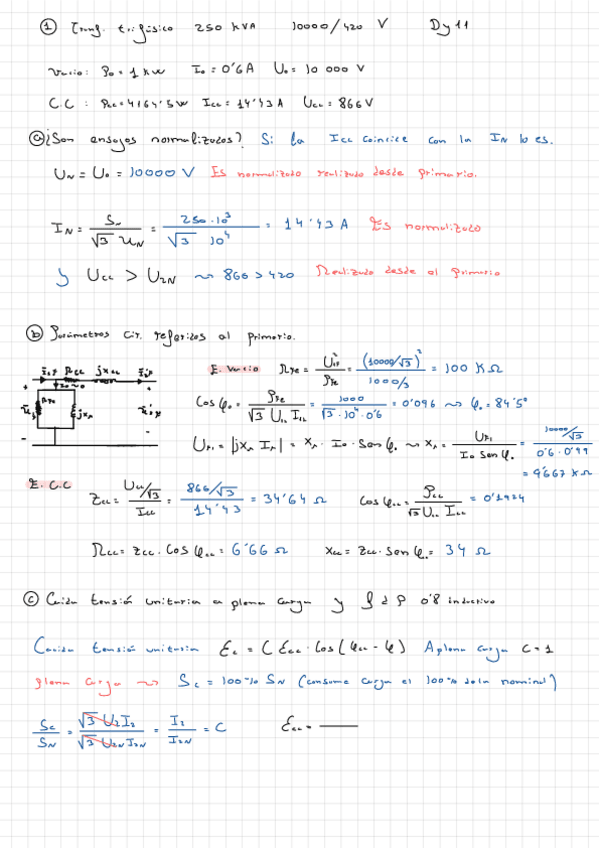 ① Transf. trifásico 250 kVA 10000/420 V Dy11
Vacío: P₀ = 1 kW I₀ = 0'6 A U₀ = 10 000 V
C.C : Pcc = 4164'5 W Icc = 14'43 A Ucc = 866 V
ⓐ ¿Son ensayos normalizados? Si la Icc coincide con la IN lo es.
UN = U₀ = 10000 V Es normalizado realizado desde primario.
IN = SN / √3 UN = 250·10³ / √3 10⁴ = 14'43 A Es normalizado
y Ucc > U2N ⇝ 866 > 420 Realizado desde el primario
ⓑ Parámetros cir. referidos al primario.
E. Vacío RFe = U²1F / PFe = (10000/√3)² / 1000/3 = 100 KΩ
Rcc jXcc
RFe jXμ
Cos φ₀ = PFe / √3 U1L I1L = 1000 / √3·10⁴·0'6 = 0'096 ⇝ φ₀ = 84'5°
UF1 = |jXμ Iμ| = Xμ · I₀ · Sen φ₀ ⇝ Xμ = UF1 / I₀ Sen φ₀ = 10000/√3 / 0'6·0'99
= 9'667 KΩ
E. C.C Zcc = Ucc/√3 / Icc = 866/√3 / 14'43 = 34'64 Ω Cos φcc = Pcc / √3 Ucc Icc = 0'1924
Rcc = Zcc · Cos φcc = 6'66 Ω Xcc = Zcc · Sen φ = 34 Ω
ⓒ Caida tensión unitaria a plena carga y f d P 0'8 inductivo
Caida tensión unitaria Ec = C Ecc · Cos(φcc − φ) A plena carga C = 1
plena carga ⇝ Sc = 100% SN (consume carga el 100% de la nominal)
Sc / SN = √3 U2 I2 / √3 U2N I2N = I2 / I2N = C Ecc = ——